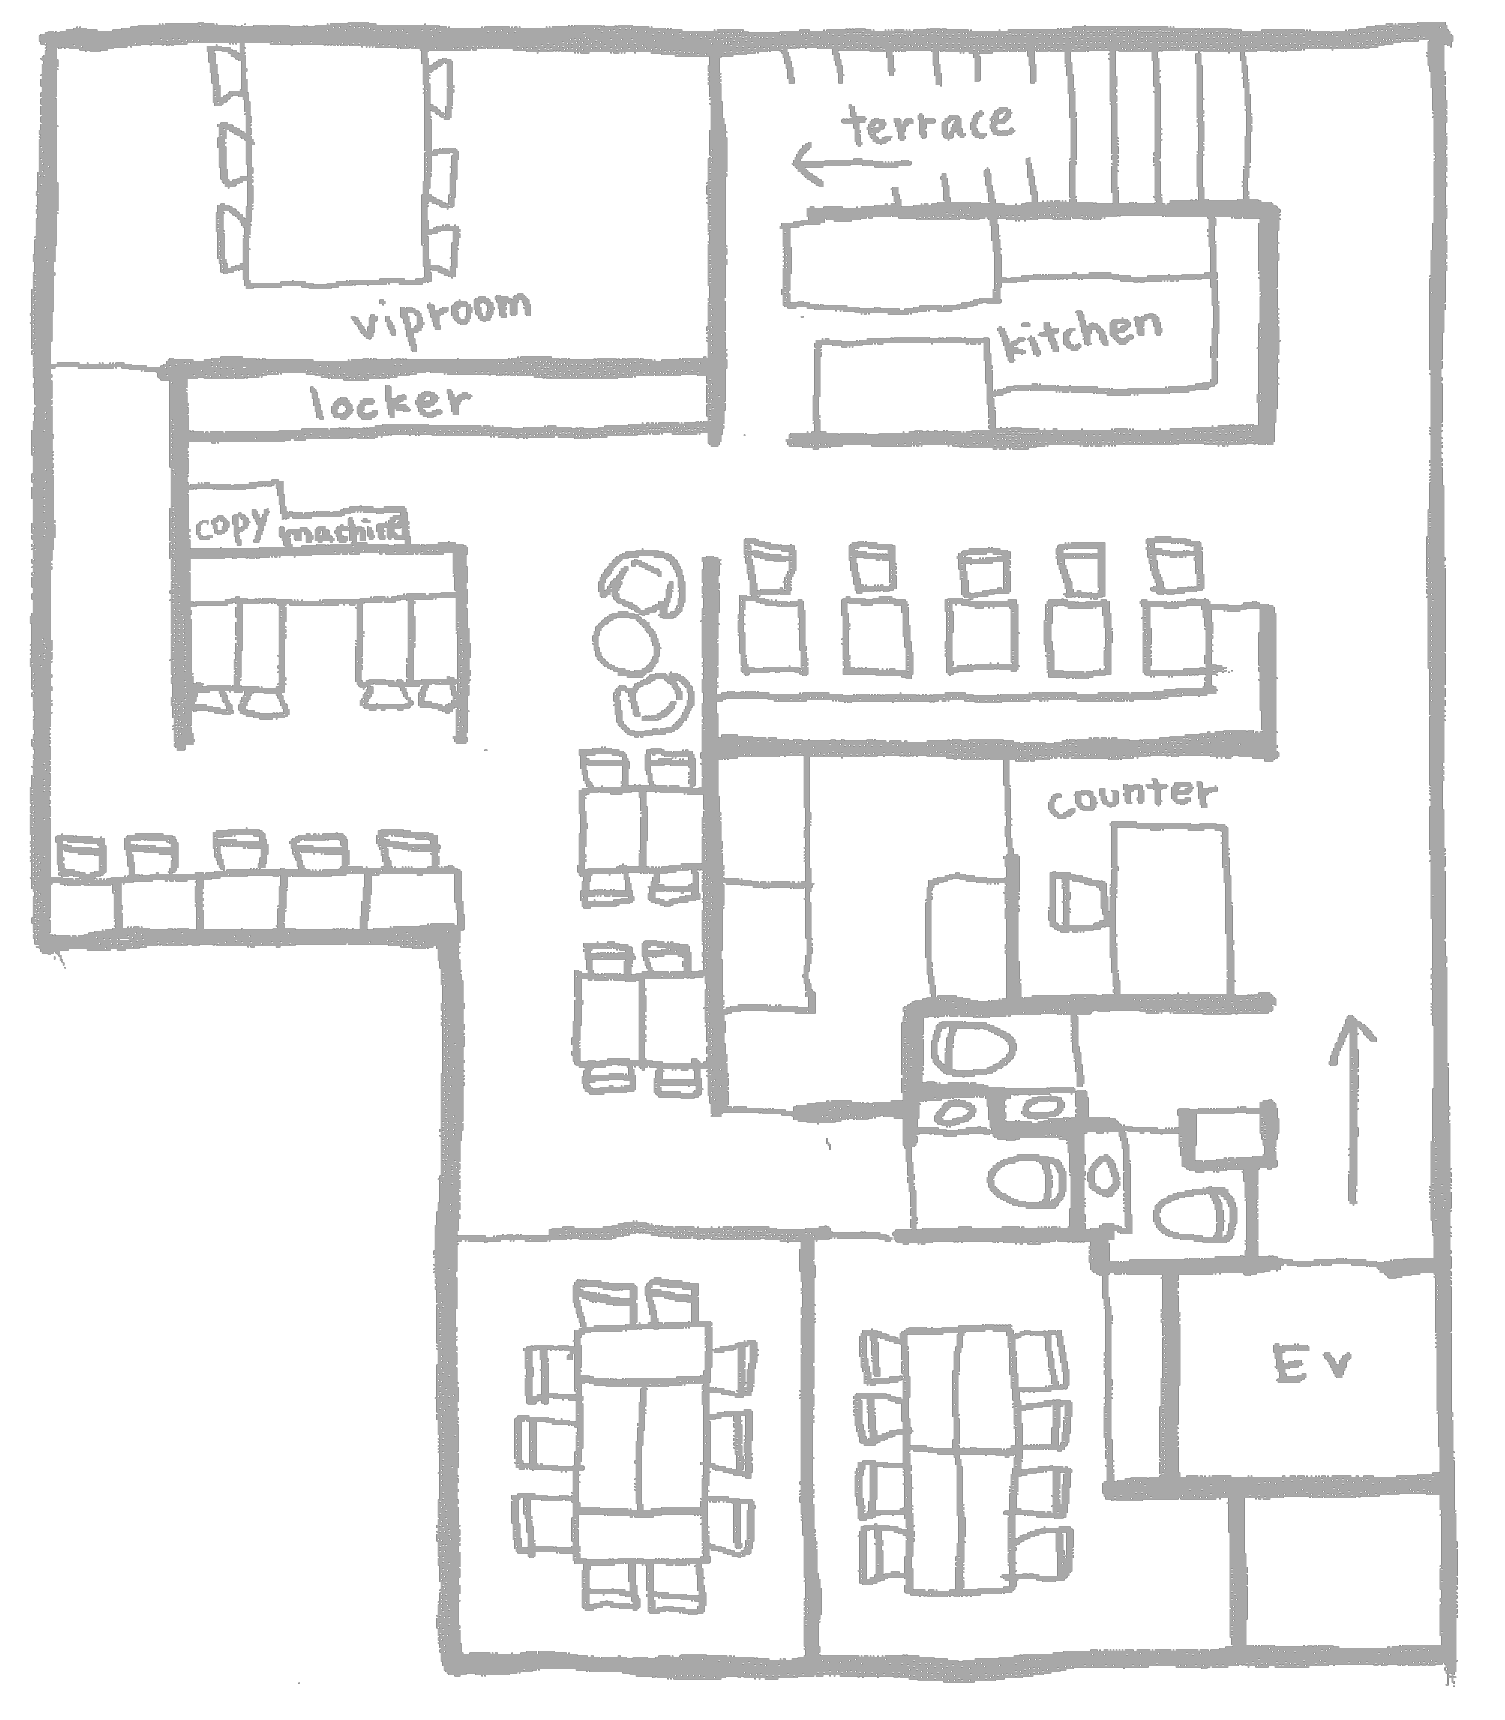 terrace
viproom
kitchen
locker
copy machine
counter
EV